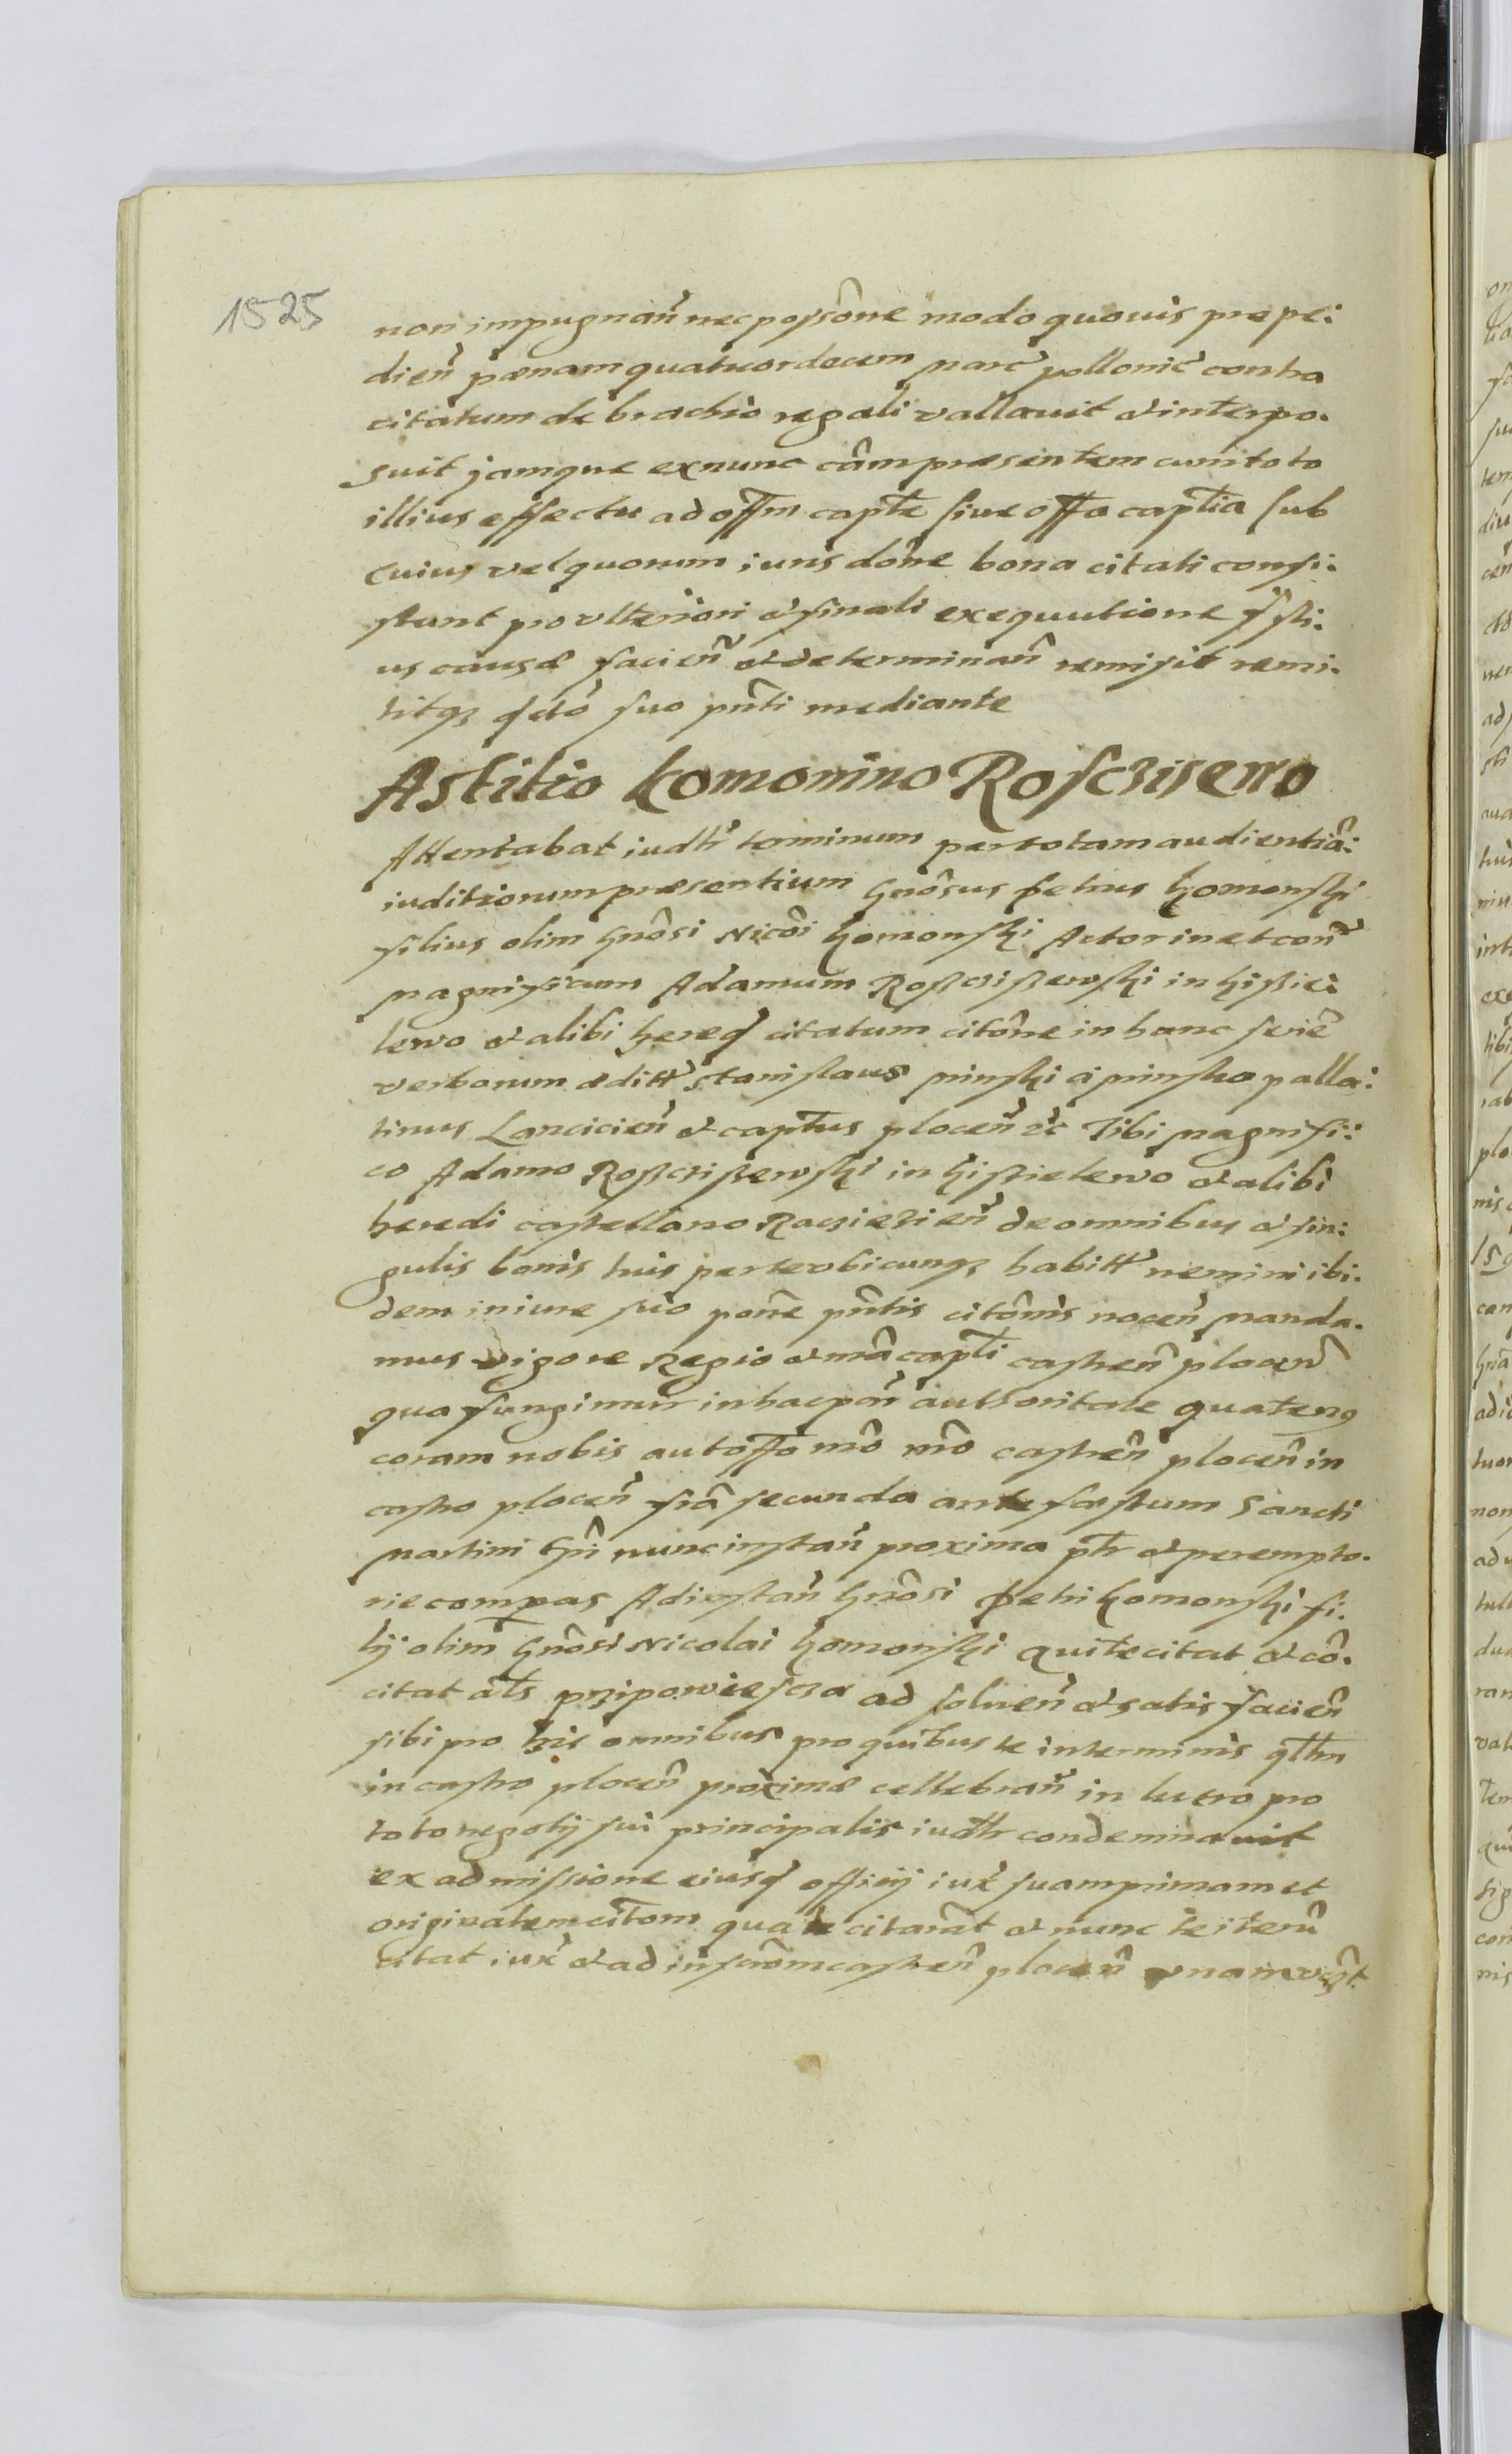 1525
non impugnan̄ nec possōne modo quouis prope:
dien̄ pœnam quatuordecem marc̄ pollonic̄ contra
citatum de brachio regali vallauit et interpo.
suit jamque exnunc cām præsentem cum toto
illius effectu ad off̄m capt̄e siue off̄a capt̄ia sub
Cuius vel quorum iuris dōne bona citati consi.
stunt pro vlteriori et finali exequutione isti.
us causæ facien̄ et determinan̄ remisit remi.
titqȝ suo pn̄ti mediante
Astitio komonino Roscziseno
Attentabat iudtr̄ terminum per totam audientiā:
iuditiorum præsentium Gnōsus Petrus komonski
filius olim Gnōsi Nicōi komonski Actor in et con̄
magnificum Adamum Roßcißewski in
lewo et alibi hered citatum citōne in hanc seriē
verborum æditt̄ Stanislaus minski a minsko palla:
tinus Lancicien̄ et capt̄us plocen̄ ꝛc̄ Tibi magnifi:
co Adamo Roßcißewski in et alibi
heredi castellano Racziezien̄ de omnibus et sin:
gulis bonis tuis parte vbicunqȝ habitt̄ nemini ibi.
dem in iure suo pōne pn̄tis citōnis nocen̄ manda.
mus vigore Regio et mā capt̄i castren̄ plocen̄
qua fungimur in hac pn̄ authoritate quatenꝰ
coram nobis aut off̄o mō nr̄o castren̄ plocen̄ in
castro plocen̄ fr̄ā secunda ante fæstum Sancti
martini nunc instan̄ proxima pt̄r et perempto.
rie compas Ad instan̄ Gnōsi Petri komonski fi.
lij olim Gnōsi Nicolai komonski qui te citat et cō.
citat al̄s przipowiescza ad soluen̄ et satis facien̄
sibi pro his omnibus pro quibus te in terminis qt̄tm
in castro plocen̄ proximæ cellebran̄ in lucro pro
toto negotij sui principalis iudtr̄ condemnauit
ex admissione eiusd officij iux̄ suam primam et
originalem cit̄om qua te citarāt et nunc te iterū
citat iux̄ et ad inscr̄om castren̄ plocen̄ vnam